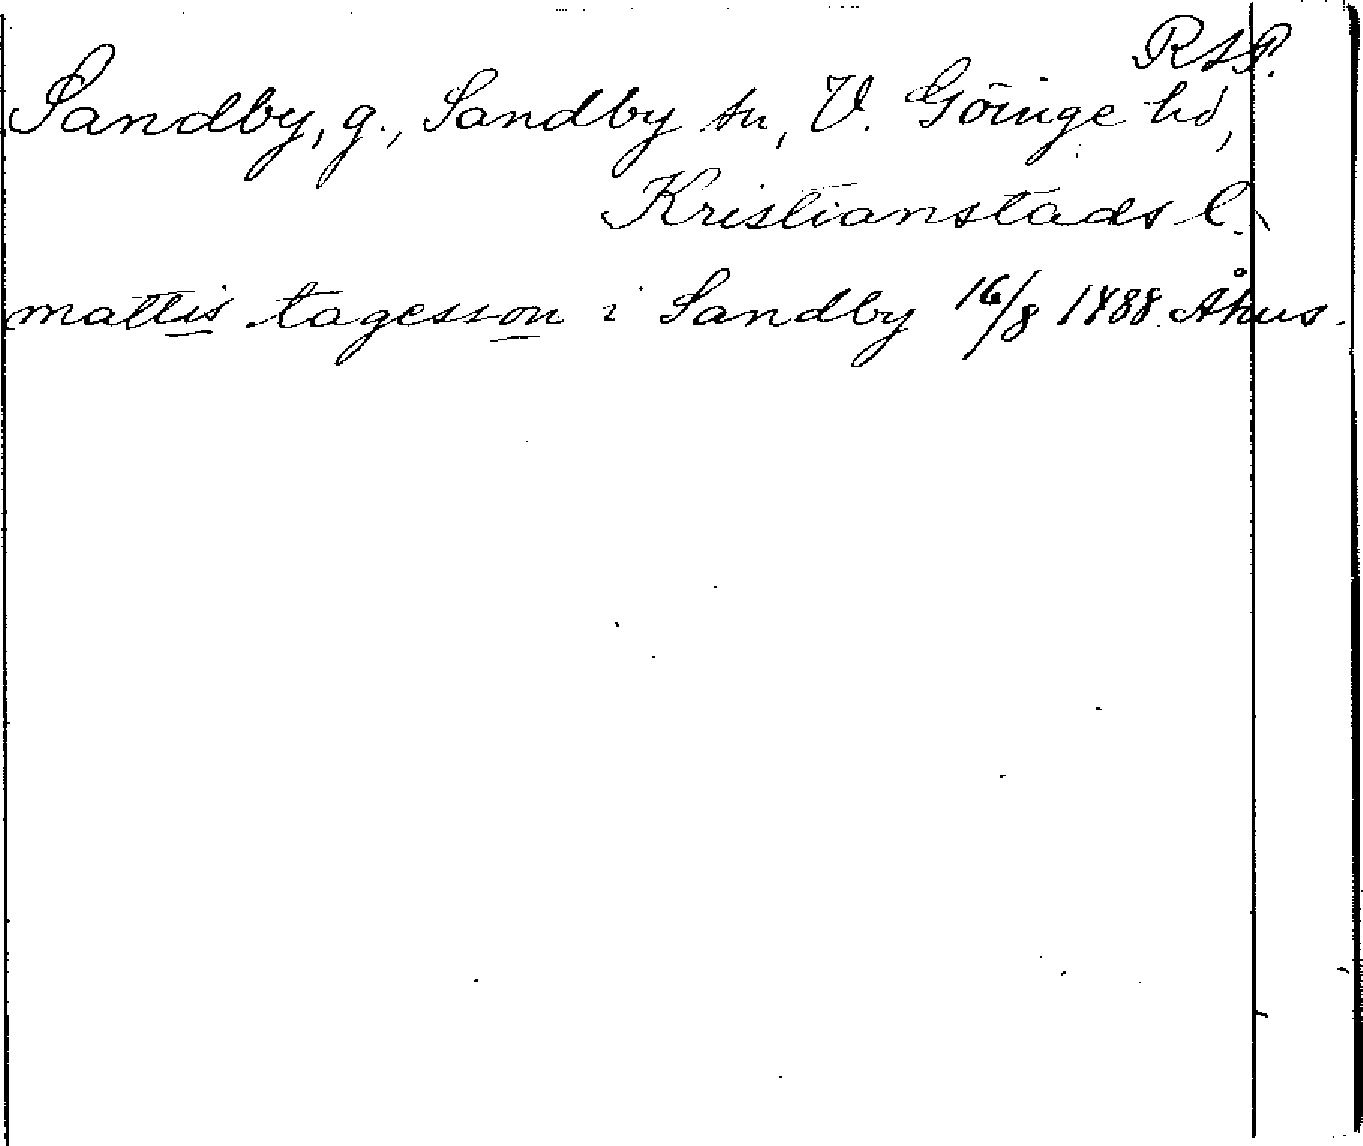 RAP.
Sandby, g., Sandby sn, V. Göinge hd,
Kristianstads l.
mattis tagesson i Sandby 16/8 1488. Åhus.